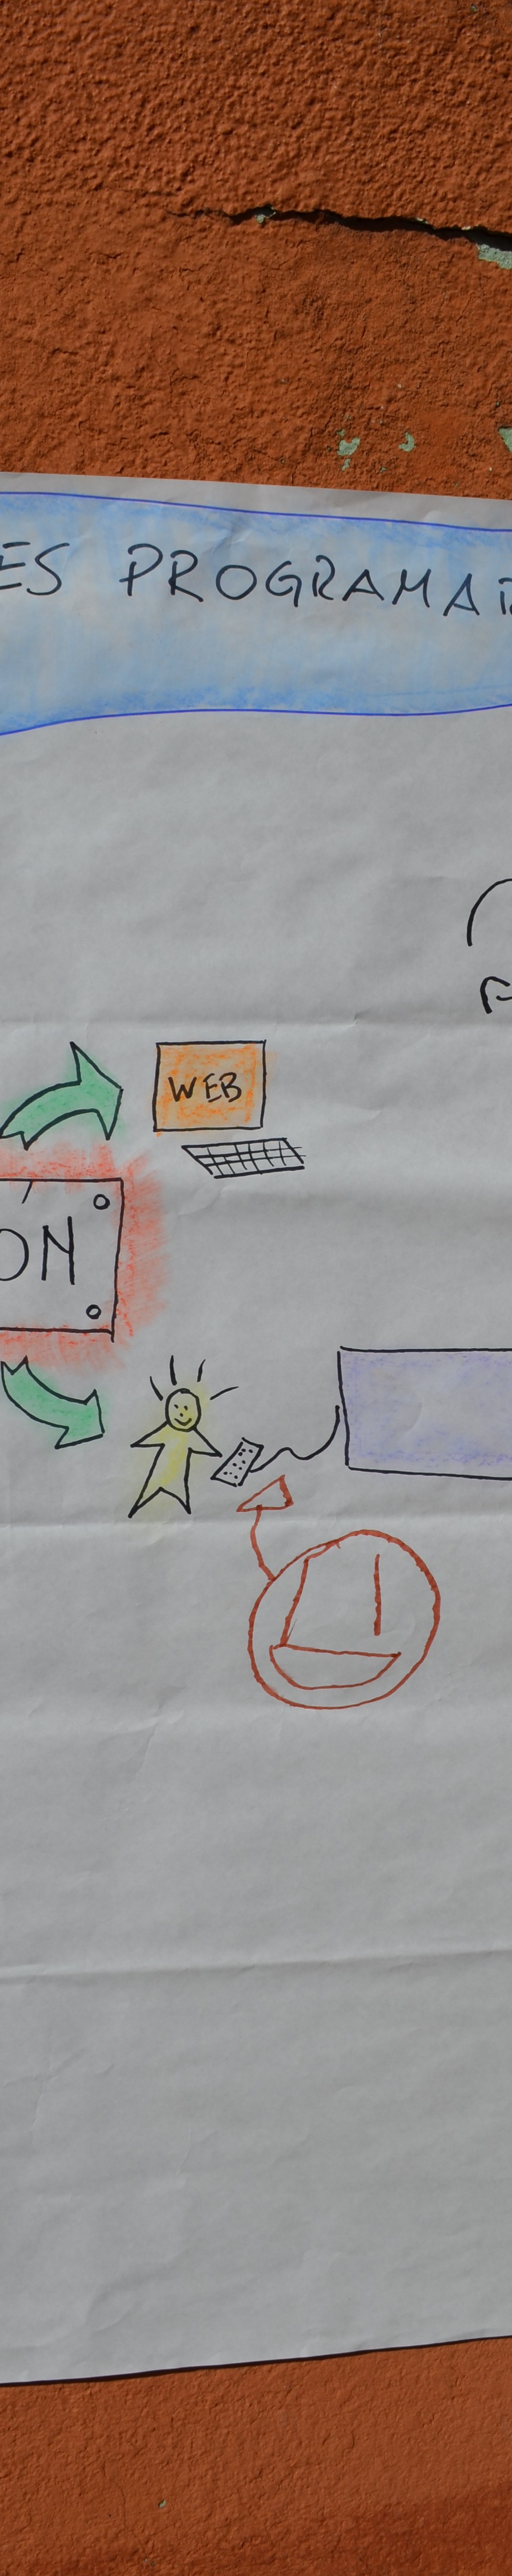 ES PROGRAMAR
WEB
ON